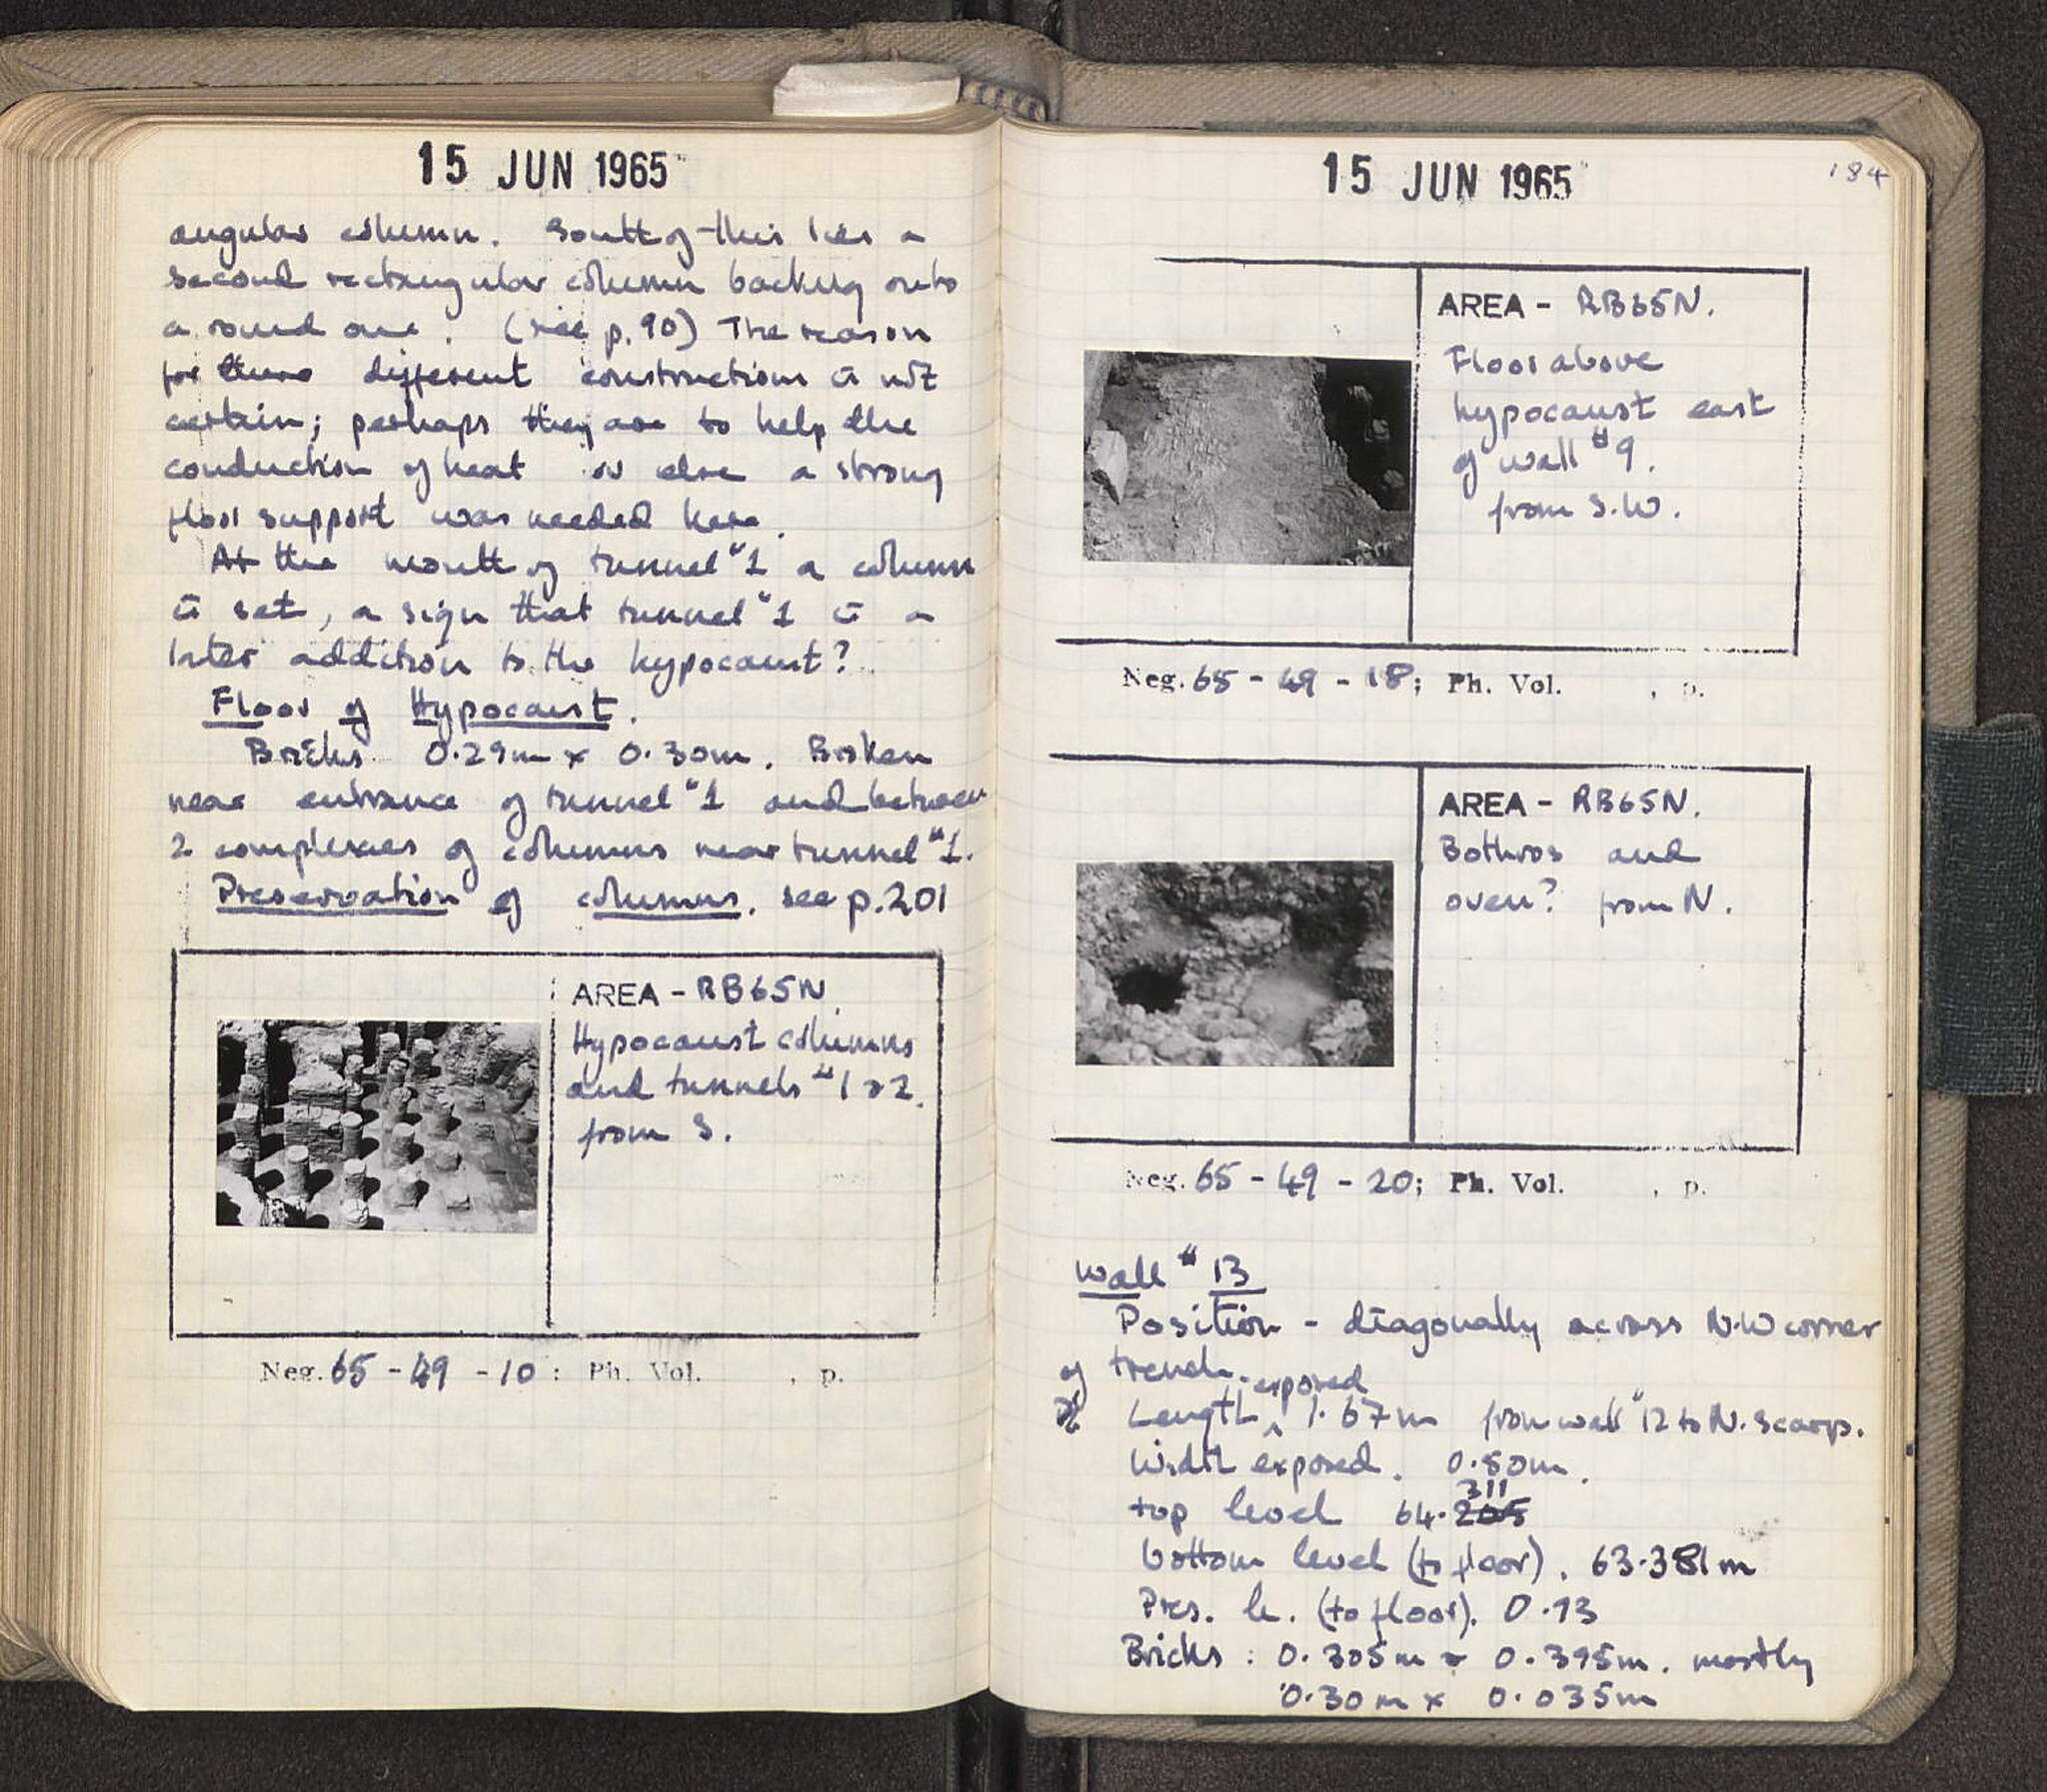 15 JUN 1965
angular column. South of this lies a
second rectangular column backing onto
a round one. (see p. 90) The reason
for these different constructions is not
certain; perhaps they are to help the
conduction of heat or else a strong
floor support was needed here.
At the mouth of tunnel #1 a column
is set, a sign that tunnel #1 is a
later addition to the hypocaust?
Floor of Hypocaust.
Bricks 0.29m x 0.30m. Broken
near entrance of tunnel #1 and between
2 complexes of columns near tunnel #1.
Preservation of columns. see p. 201
AREA - RB65N
Hypocaust columns
and tunnels #1 2.
from S.
Neg. 65 - 49 - 10 ; Ph. Vol. , p.
15 JUN 1965
184
AREA - RB65N.
Floor above
hypocaust east
of wall #9.
from S.W.
Neg. 65 - 49 - 18; Ph. Vol. , p.
AREA - RB65N.
Bothros and
oven? from N.
Neg. 65 - 49 - 20; Ph. Vol. , p.
Wall #13
Position - diagonally across N.W corner
of trench.
Length exposed 1.67m from wall #12 to N. scarp.
Width exposed. 0.50m.
311
top level 64.265
bottom level (to floor). 63.381m
Pres. h. (to floor). 0.93
Bricks : 0.305m x 0.395m. mostly
0.30m x 0.035m